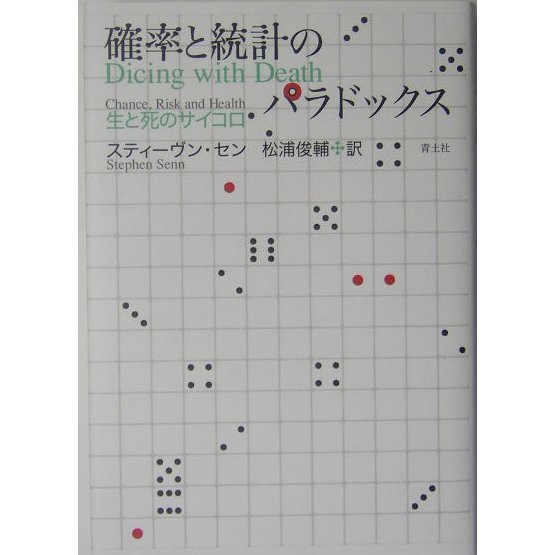 確率と統計の
Dicing with Death
パラドックス
Chance, Risk and Health
生と死のサイコロ
スティーヴン・セン 松浦俊輔✣訳 青土社
Stephen Senn